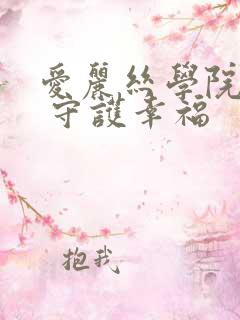 愛麗絲學院
守護幸福
抱我